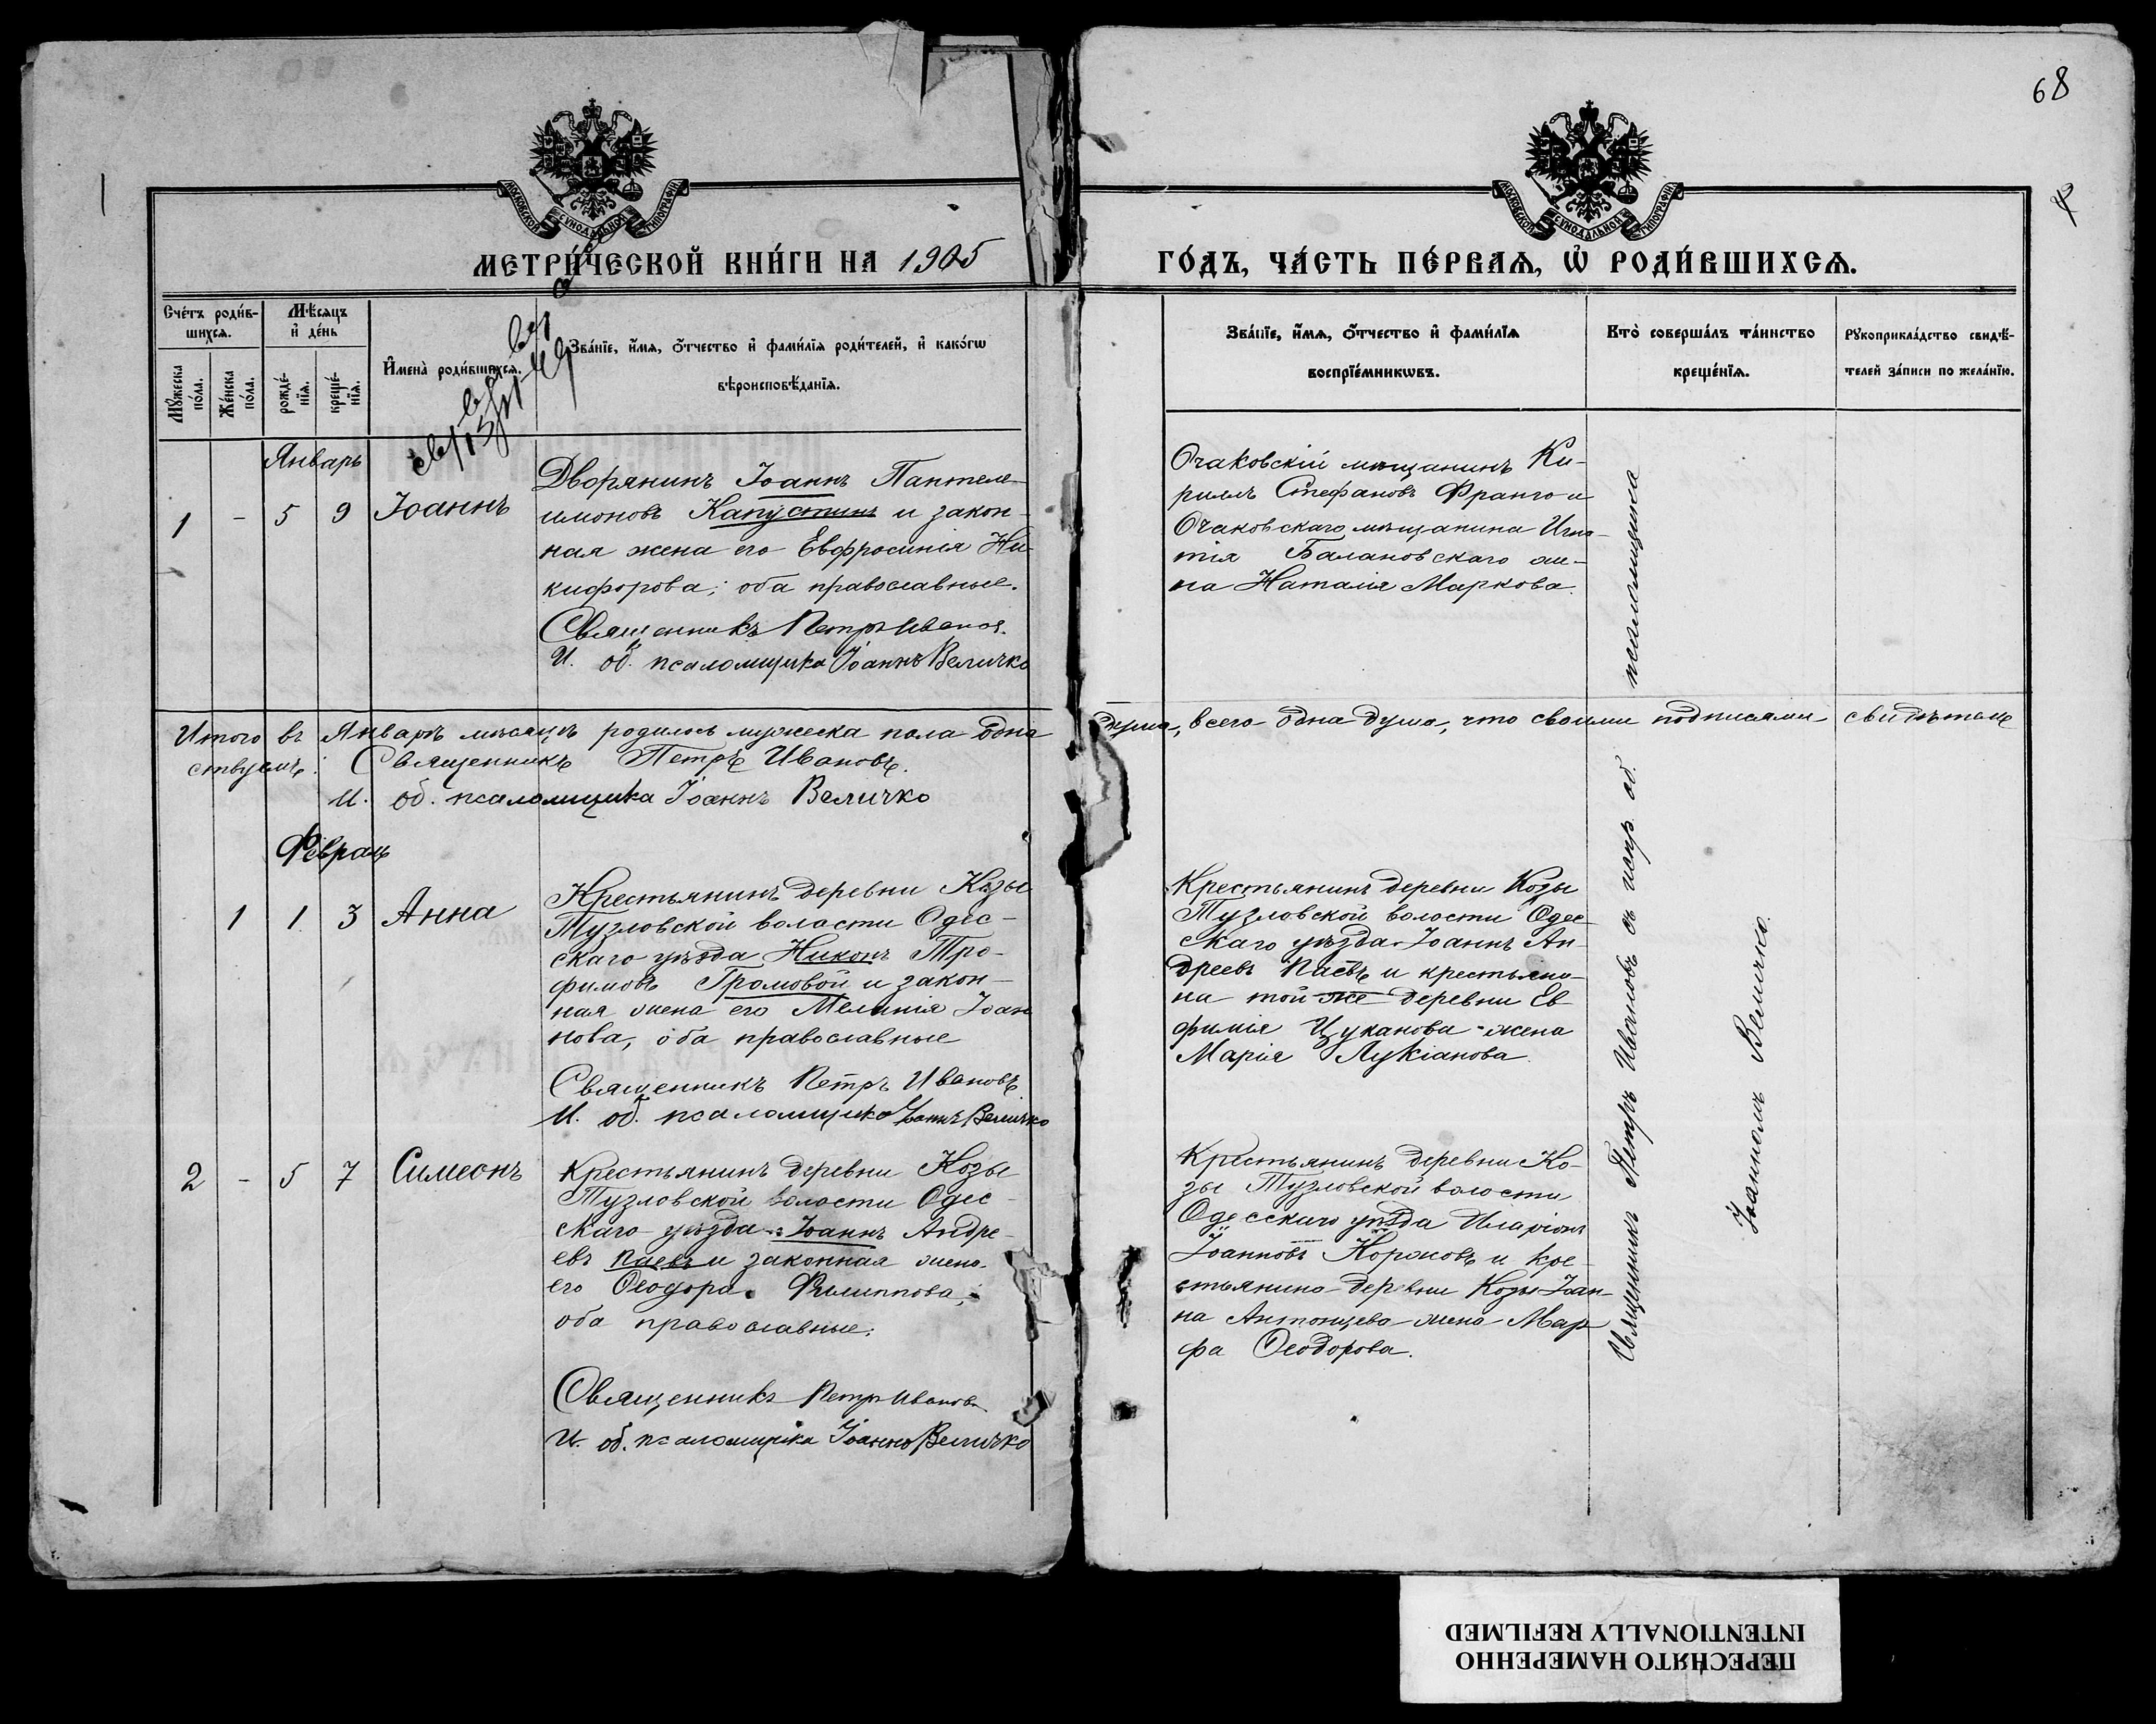 68
МОСКОВСКОЙ СѴНОДАЛЬНОЙ ТИПОГРАФІИ
МОСКОВСКОЙ СѴНОДАЛЬНОЙ ТИПОГРАФІИ
МЕТРИ́ЧЕСКОЙ КНИ́ГИ НА 1905
ГО́ДЪ, ЧА́СТЬ ПЕ́РВАѦ, Ѡ҆ РОДИ́ВШИХСѦ.
Сче́тъ роди́в-
шихсѧ.
Му́жеска по́ла.
Же́нска по́ла.
Мѣ́сѧцъ
и҆ де́нь
рожде́-
нїѧ.
креще́-
нїѧ.
И҆мена̀ роди́вшихсѧ.
Зва́нїе, и҆́мѧ, ѻ҆́тчество и҆ фами́лїѧ роди́телей, и҆ како́гѡ
вѣроисповѣ́данїѧ.
Зва́нїе, и҆́мѧ, ѻ҆́тчество и҆ фами́лїѧ
воспрїе́мникѡвъ.
Кто̀ соверша́лъ та́инство
креще́нїѧ.
Рꙋкоприкла́дство свидѣ́-
телей за́писи по жела́нїю.
Январь
1 - 5 9 Іоаннъ
Дворянинъ Іоаннъ Пантеле-
имоновъ Капустинъ и закон-
ная жена его Евфросинія Ни-
кифорова; оба православные.
Священникъ Петръ Ивановъ.
И. об. псаломщика Іоаннъ Величко
Очаковскій мѣщанинъ Ки-
риллъ Стефановъ Франго и
Очаковскаго мѣщанина Игна-
тія Балановскаго же-
на Наталія Маркова.
Итого въ Январѣ мѣсяцѣ родилось мужеска пола одна душа, всего одна душа, что своими подписями свидѣтель
ствуемъ: Священникъ Петръ Ивановъ.
И. об. псаломщика Іоаннъ Величко
Февраль
1 1 3 Анна
Крестьянинъ деревни Козы
Тузловской волости Одес-
скаго уѣзда Никонъ Тро-
фимовъ Громовой и закон-
ная жена его Меланія Іоан
нова, оба православные
Священникъ Петръ Ивановъ
И. об. псаломщика Іоаннъ Величко
Крестьянинъ деревни Козы
Тузловской волости Одес
скаго уѣзда Іоаннъ Ан-
дреевъ Паевъ и крестьяни-
на той же деревни Ев
фимія Цуканова жена
Марія Лукіанова.
2 - 5 7 Симеонъ
Крестьянинъ деревни Козы
Тузловской волости Одес-
скаго уѣзда Іоаннъ Андре-
евъ Паевъ и законная жена
его Ѳеодора Филиппова,
оба православные.
Священникъ Петръ Ивановъ
И. об. псаломщика Іоаннъ Величко
Крестьянинъ деревни Ко-
зы Тузловской волости
Одесскаго уѣзда Иларіонъ
Іоанновъ и кре-
стьянина деревни Козы Іоан-
на Антонцева жена Мар
фа Ѳеодорова.
Священникъ Петръ Ивановъ съ испр. об. псаломщика
Іоанномъ Величко.
ПЕРЕСНЯТО НАМЕРЕННО
INTENTIONALLY REFILMED